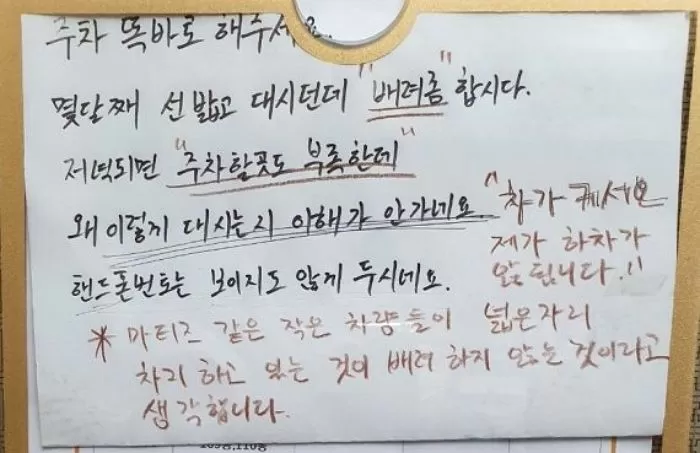 주차 똑바로 해주세요.
몇달째 선 밟고 대시던데 "배려좀" 합시다.
저녁되면 "주차할곳도 부족한데"
왜 이렇게 대시는지 이해가 안가네요
핸드폰번호는 보이지도 않게 두시네요.
"차가 커서요
제가 하차가
안됩니다."
* 마티즈 같은 작은 차량들이 넓은자리
차리 하고 있는 것이 배려 하지 않는 것이라고
생각합니다.